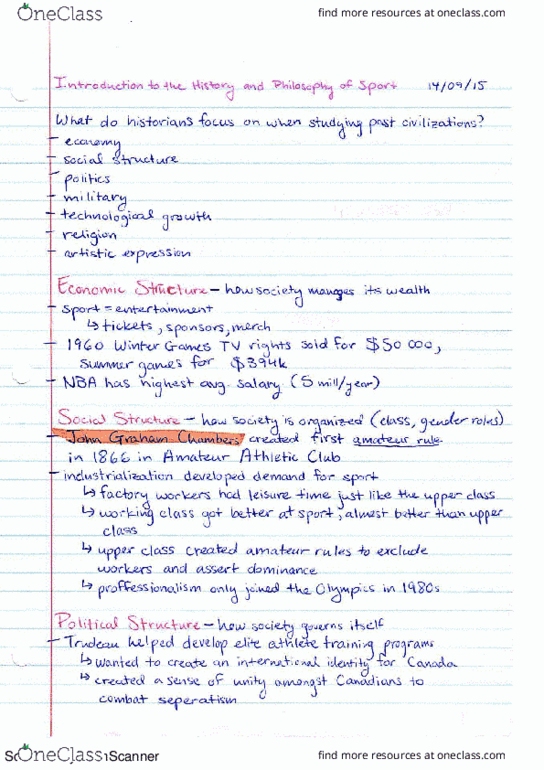 OneClass
find more resources at oneclass.com
Introduction to the History and Philosophy of Sport 14/09/15
What do historians focus on when studying past civilizations?
- economy
- social structure
- politics
- military
- technological growth
- religion
- artistic expression
Economic Structure - how society manages its wealth
- sport = entertainment
↳ tickets, sponsors, merch
- 1960 Winter Games TV rights sold for $50 000,
Summer games for $394k
- NBA has highest avg. salary (5 mill/year)
Social Structure - how society is organized (class, gender roles)
- John Graham Chambers created first amateur rule
in 1866 in Amateur Athletic Club
- industrialization developed demand for sport
↳ factory workers had leisure time just like the upper class
↳ working class got better at sport, almost better than upper
class
↳ upper class created amateur rules to exclude
workers and assert dominance
↳ proffessionalism only joined the Olympics in 1980s
Political Structure - how society governs itself
- Trudeau helped develop elite athlete training programs
↳ wanted to create an international identity for Canada
↳ created a sense of unity amongst Canadians to
combat seperatism
OneClass
Scanner
find more resources at oneclass.com